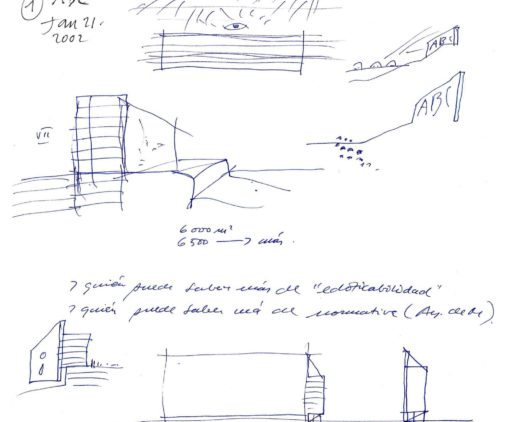 1
Jan 21.
2002
ABC
ABC
VII
6000 m²
6500 → más.
> quién puede saber más de "edificabilidad"
> quién puede saber má de normative (Ay. de